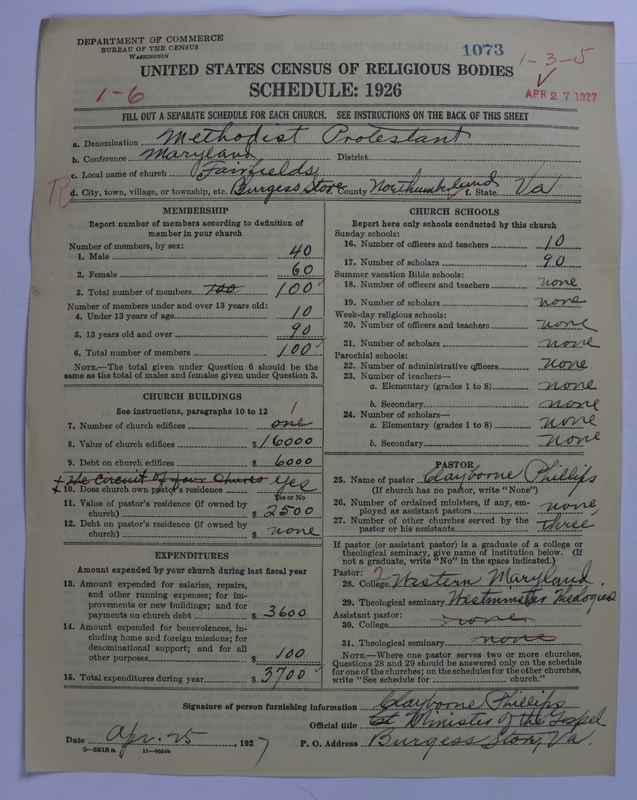 DEPARTMENT OF COMMERCE
BUREAU OF THE CENSUS
WASHINGTON
1073
1-3-5
UNITED STATES CENSUS OF RELIGIOUS BODIES
SCHEDULE: 1926
1-6
APR 27 1927
FILL OUT A SEPARATE SCHEDULE FOR EACH CHURCH. SEE INSTRUCTIONS ON THE BACK OF THIS SHEET
a. Denomination Methodist Protestant
b. Conference Maryland District
c. Local name of church Fairfields
d. City, town, village, or township, etc. Burgess Store County Northumberland f. State Va
MEMBERSHIP
Report number of members according to definition of
member in your church
Number of members, by sex:
1. Male 40
2. Female 60
3. Total number of members 100 100
Number of members under and over 13 years old:
4. Under 13 years of age 10
5. 13 years old and over 90
6. Total number of members 100
NOTE.—The total given under Question 6 should be
same as the total of males and females given under Question 3.
CHURCH BUILDINGS
See instructions, paragraphs 10 to 12
1
7. Number of church edifices one
8. Value of church edifices $ 16000
9. Debt on church edifices $ 6000
+ the Circuit of four Churces
+ 10. Does church own pastor's residence yes
Yes or No
11. Value of pastor's residence (if owned by
church) $ 2500
12. Debt on pastor's residence (if owned by
church) $ none
EXPENDITURES
Amount expended by your church during last fiscal year
13. Amount expended for salaries, repairs,
and other running expenses; for im-
provements or new buildings; and for
payments on church debt $ 3600
14. Amount expended for benevolences, in-
cluding home and foreign missions; for
denominational support; and for all
other purposes $ 100
15. Total expenditures during year $ 3700
CHURCH SCHOOLS
Report here only schools conducted by this church
Sunday schools:
16. Number of officers and teachers 10
17. Number of scholars 90
Summer vacation Bible schools:
18. Number of officers and teachers none
19. Number of scholars none
Week-day religious schools:
20. Number of officers and teachers none
21. Number of scholars none
Parochial schools:
22. Number of administrative officers none
23. Number of teachers—
a. Elementary (grades 1 to 8) none
b. Secondary none
24. Number of scholars—
a. Elementary (grades 1 to 8) none
b. Secondary none
PASTOR
25. Name of pastor Clayborne Phillips
(If church has no pastor, write "None")
26. Number of ordained ministers, if any, em-
ployed as assistant pastors none
27. Number of other churches served by the
pastor or his assistants three
If pastor (or assistant pastor) is a graduate of a college or
theological seminary, give name of institution below. (If
not a graduate, write "No" in the space indicated.)
Pastor: 2
28. College Western Maryland.
29. Theological seminary Westminster
Assistant pastor:
30. College none
31. Theological seminary none
NOTE.—Where one pastor serves two or more churches,
Questions 28 and 29 should be answered only on the schedule
for one of the churches; on the schedules for the other churches,
write "See schedule for church."
Signature of person furnishing information Clayborne Phillips
Official title Minister of the Gospel
Date Apr. 25, 1927 P. O. Address Burgess Store, Va.
8-5518 a 11-9054b